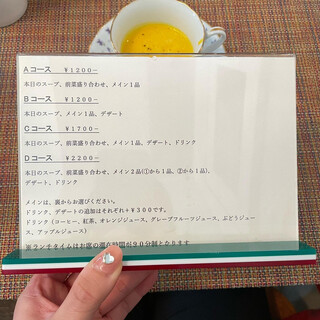 Aコース　¥1200-
本日のスープ、前菜盛り合わせ、メイン1品
Bコース　¥1200-
本日のスープ、メイン1品、デザート
Cコース　¥1700-
本日のスープ、前菜盛り合わせ、メイン1品、デザート、ドリンク
Dコース　¥2200-
本日のスープ、前菜盛り合わせ、メイン2品(①から1品、②から1品)、
デザート、ドリンク
メインは、裏からお選びください。
ドリンク、デザートの追加はそれぞれ+¥300です。
ドリンク(コーヒー、紅茶、オレンジジュース、グレープフルーツジュース、ぶどうジュー
ス、アップルジュース)
※ランチタイムはお席の滞在時間が90分制となります